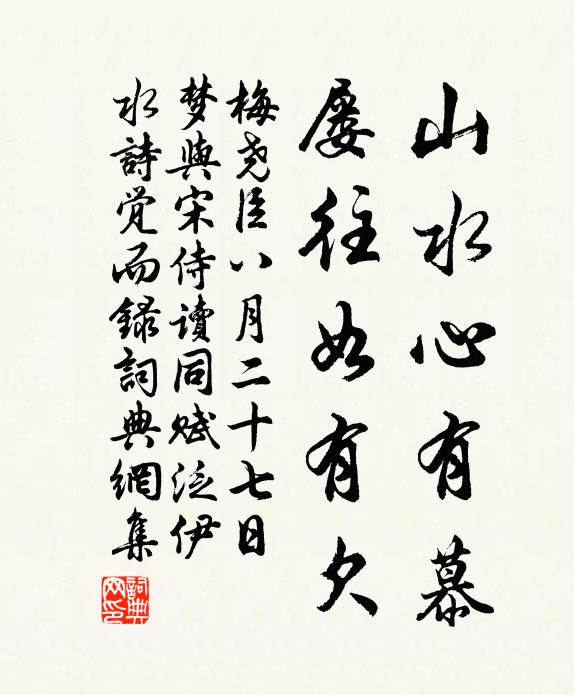 山水心有慕
屡往如有欠
梅尧臣八月二十七日
梦與宋侍讀同赋泛伊
水詩觉而録詞典網集
詞典網印